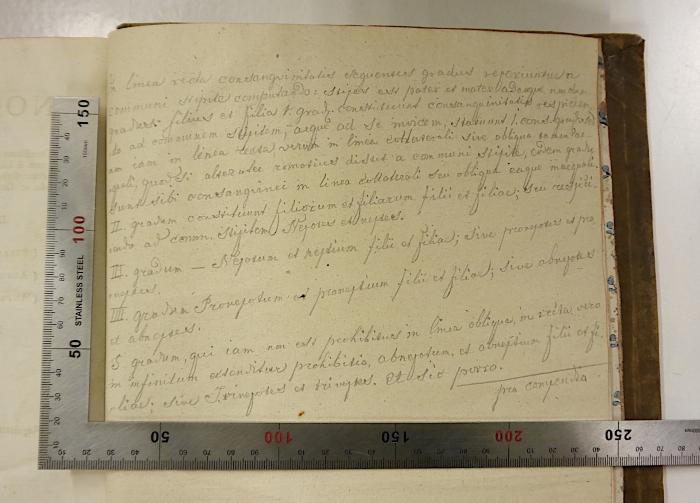 linea recta consanguinitatis sequentes gradus reperiuntur a
communi stipite computando: stipes est pater et mater adaeque
gradus: filius et filia I. grad: constituunt consanguinitatis
ad communem stipitem, aeque ad se invicem, statuunt I. consang
iam in linea recta verum in linea collaterali sive obliqua
quodsi alteruter remotius distet a communi stipite, eodem gradu
sunt sibi consanguinei in linea collaterali seu obliqua eaque inaequali.
II. gradum constituunt filiorum et filiarum filii et filiae; seu
ad comm. stipitem Nepotes et neptes.
III. gradum — Nepotum et neptium filii et filiae; sive pronepotes et pro
neptes.
IIII. gradum Pronepotum et proneptium filii et filiae; sive abnepotes
et abneptes.
5. gradum, qui iam non est prohibitus in linea obliqua, in recta vero
in infinitum extenditur prohibitio, abnepotum, et abneptium filii et fi
liae; sive Trinepotes et trineptes. et sic porro.
pro
150
100
STAINLESS STEEL
50
50
100
150
200
250